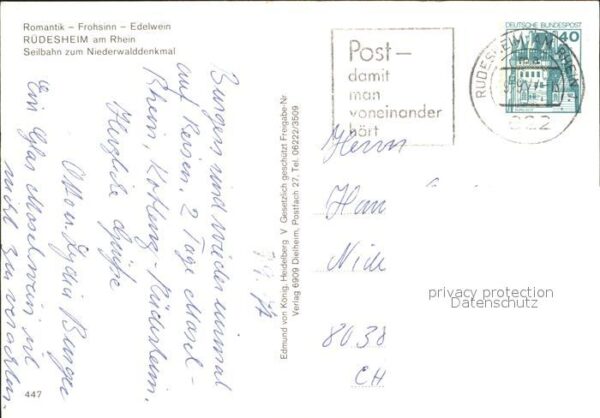 Romantik – Frohsinn – Edelwein
RÜDESHEIM am Rhein
Seilbahn zum Niederwalddenkmal
Burgers sind wieder einmal
auf Reisen. 2 Tage Mosel-
Rhein, Koblenz-Rüdesheim.
Herzliche Grüße
Otto u. Lydia Burger
Ein Glas Moselwein ist
nicht zu verachten.
447
Edmund von König, Heidelberg V Gesetzlich geschützt Freigabe-Nr.
Verlag 6909 Dielheim, Postfach 27, Tel. 06222/3509
Post –
damit
man
voneinander
hört
RÜDESHEIM AM RHEIN
DEUTSCHE BUNDESPOST
40
Herrn
Han
8038
CH
privacy protection
Datenschutz